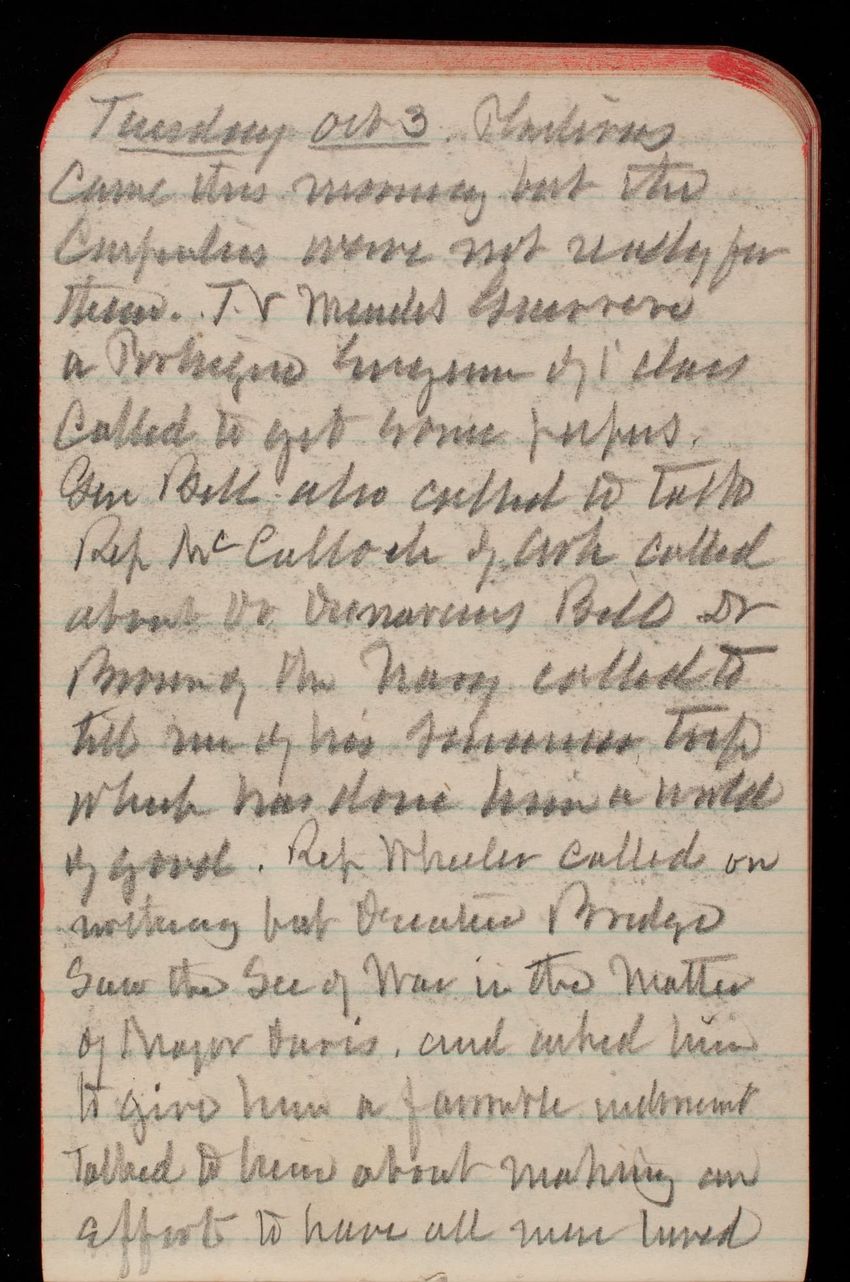 Tuesday Oct 3. Plasterers
Came this morning but the
Carpenters were not ready for
them. T V Mendes Guerrero
a Portugese Engineer of 1 class
Called to get some papers.
Gen Bell also called to talk
Rep McCulloch of Ark called
about Bill Dr
Brown of the Navy called to
tell me of his summer trip
which has done him a world
of good. Rep Wheeler called on
nothing but Decatur Bridge
Saw the Sec of War in the Matter
of Major Davis, and asked him
to give him a favorable indorsement
Talked to him about making an
effort to have all men hired